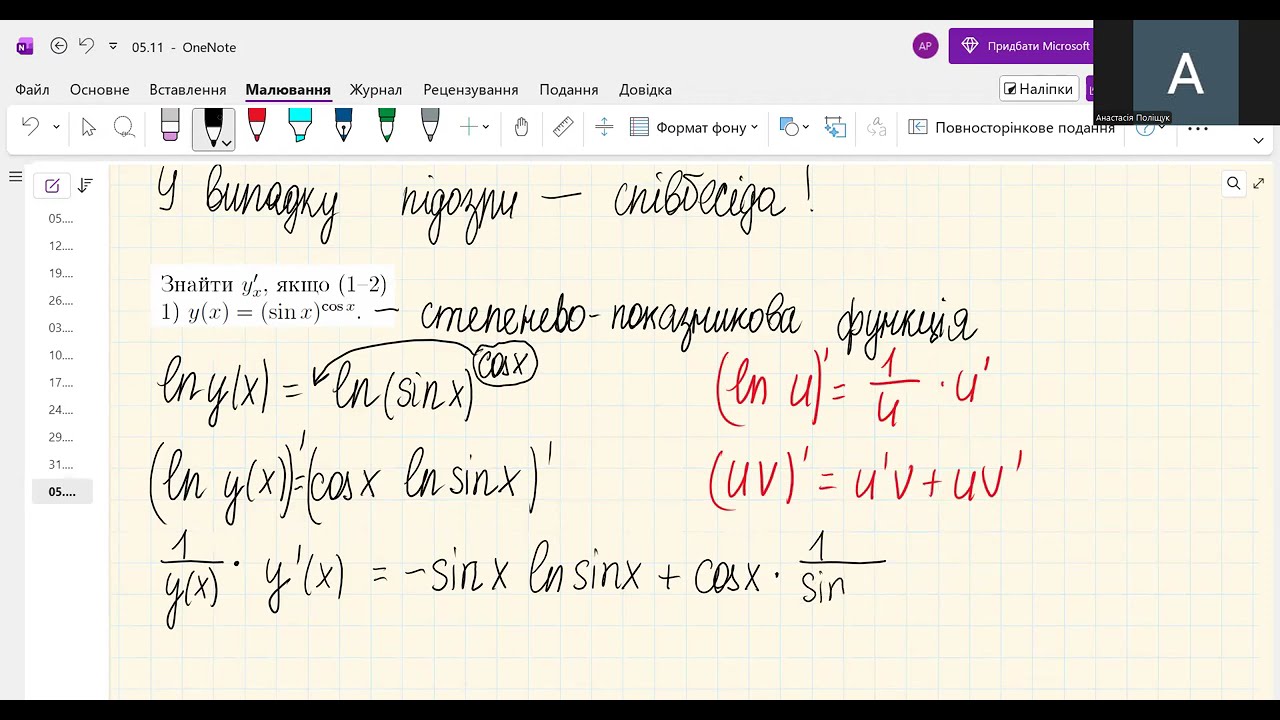 05.11 - OneNote
AP
Придбати Microsoft
A
Анастасія Поліщук
Файл Основне Вставлення Малювання Журнал Рецензування Подання Довідка
Наліпки
Формат фону
Повносторінкове подання
05....
12....
19....
26....
03....
10....
17....
24....
29....
31....
05....
У випадку підозри — співбесіда!
Знайти y′ₓ, якщо (1–2)
1) y(x) = (sin x)^{cos x}. — степенево-показникова функція
ln y(x) = ln(sin x)^{cos x}
(ln u)' = 1/u · u'
(ln y(x))' = (cos x ln sin x)'
(uv)' = u'v + uv'
1/y(x) · y'(x) = -sin x ln sin x + cos x · 1/sin